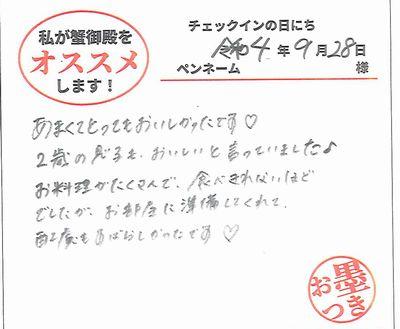 私が蟹御殿を
オススメ
します！
チェックインの日にち
令和4年9月28日
ペンネーム 様
あまくてとってもおいしかったです♡
2歳の息子も、おいしいと言っていました♪
お料理がたくさんで、食べきれないほど
でしたが、お部屋に準備してくれて、
配慮もすばらしかったです♡
お墨つき